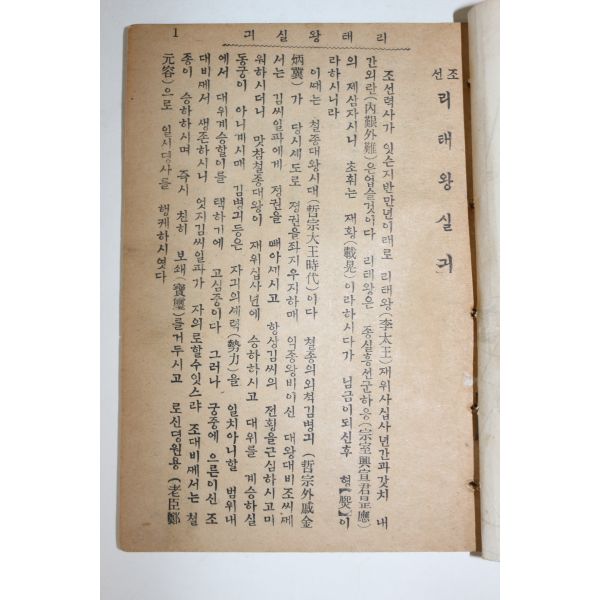 조선 리태왕실긔
조선력사가 잇슨지반만년이래로 리태왕(李太王)재위사십사년간과갓치 내
간외란(內艱外難)은업슬것이다 리태왕은 종실흥선군하응(宗室興宣君昰應)
의 제삼자시니 초휘는 재황(載晃)이라하시다가 님금이되신후 형【㷩】이
라하시니라
이때는 철종대왕시대(哲宗大王時代)이다 철종의외척김병긔(哲宗外戚金
炳冀)가 당시세도로 정권을좌지우지하매 익종왕비이신 대왕대비조씨께
서는 김씨일파에게 정권을 빼아세시고 항상김씨의 전황을근심하시고미
워하시더니 맛참철종대왕이 재위십사년에 승하하시고 대위를 계승하실
동궁이 아니계시매 김병긔등은 자긔의세력(勢力)을 일치아니할 범위내
에서 대위계승할이를 택하기에 고심중이다 그러나 궁중에 으른이신 조
대비께서 생존하시니 엇지김씨일파가 자의로할수잇스랴 조대비께서는 철
종이 승하하시며 즉시 친히 보새(寶璽)를거두시고 로신뎡원용(老臣鄭
元容)으로 일시뎡사를 행케하시엿다
리태왕실긔
1